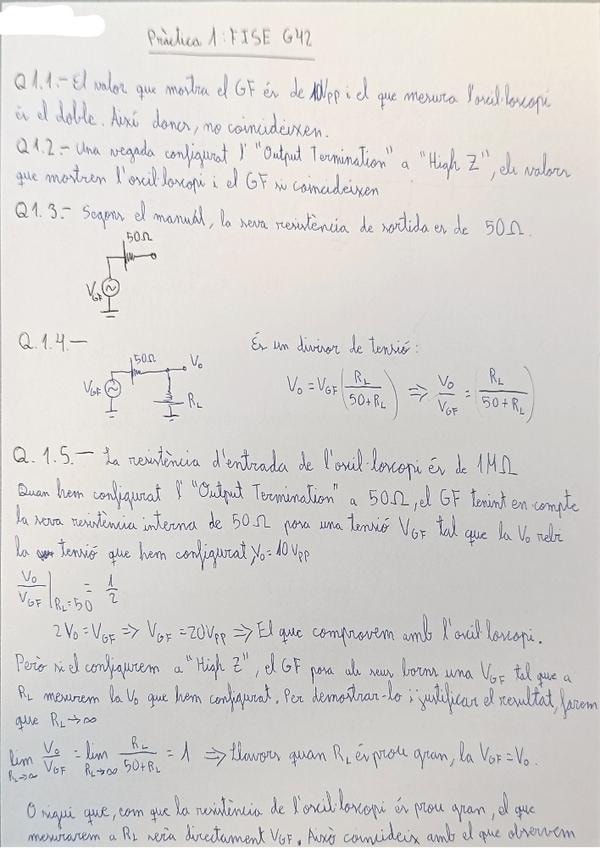 Pràctica 1: FISE G42
Q1.1.- El valor que mostra el GF és de 10Vpp i el que mesura l'oscil·loscopi
és el doble. Així doncs, no coincideixen.
Q1.2.- Una vegada configurat l' "Output Termination" a "High Z", els valors
que mostren l'oscil·loscopi i el GF si coincideixen
Q1.3.- Segons el manual, la seva resistència de sortida es de 50Ω.
50Ω
VGF
Q.1.4.-
És un divisor de tensió:
50Ω
Vo
VGF
RL
Vo = VGF (RL / 50+RL) ⇒ Vo / VGF = (RL / 50+RL)
Q.1.5.- La resistència d'entrada de l'oscil·loscopi és de 1MΩ
Quan hem configurat l' "Output Termination" a 50Ω, el GF tenint en compte
la seva resistència interna de 50Ω posa una tensió VGF tal que la Vo rebi
la tensió que hem configurat, Vo = 10Vpp
Vo / VGF |RL=50 = 1/2
2Vo = VGF ⇒ VGF = 20Vpp ⇒ El que comprovem amb l'oscil·loscopi.
Però si el configurem a "High Z", el GF posa als seus borns una VGF tal que a
RL mesurem la Vo que hem configurat. Per demostrar-lo i justificar el resultat, farem
que RL→∞
lim RL→∞ Vo / VGF = lim RL→∞ RL / 50+RL = 1 ⇒ Llavors quan RL és prou gran, la VGF = Vo.
O sigui que, com que la resistència de l'oscil·loscopi és prou gran, el que
mesurarem a RL serà directament VGF. Això coincideix amb el que observem